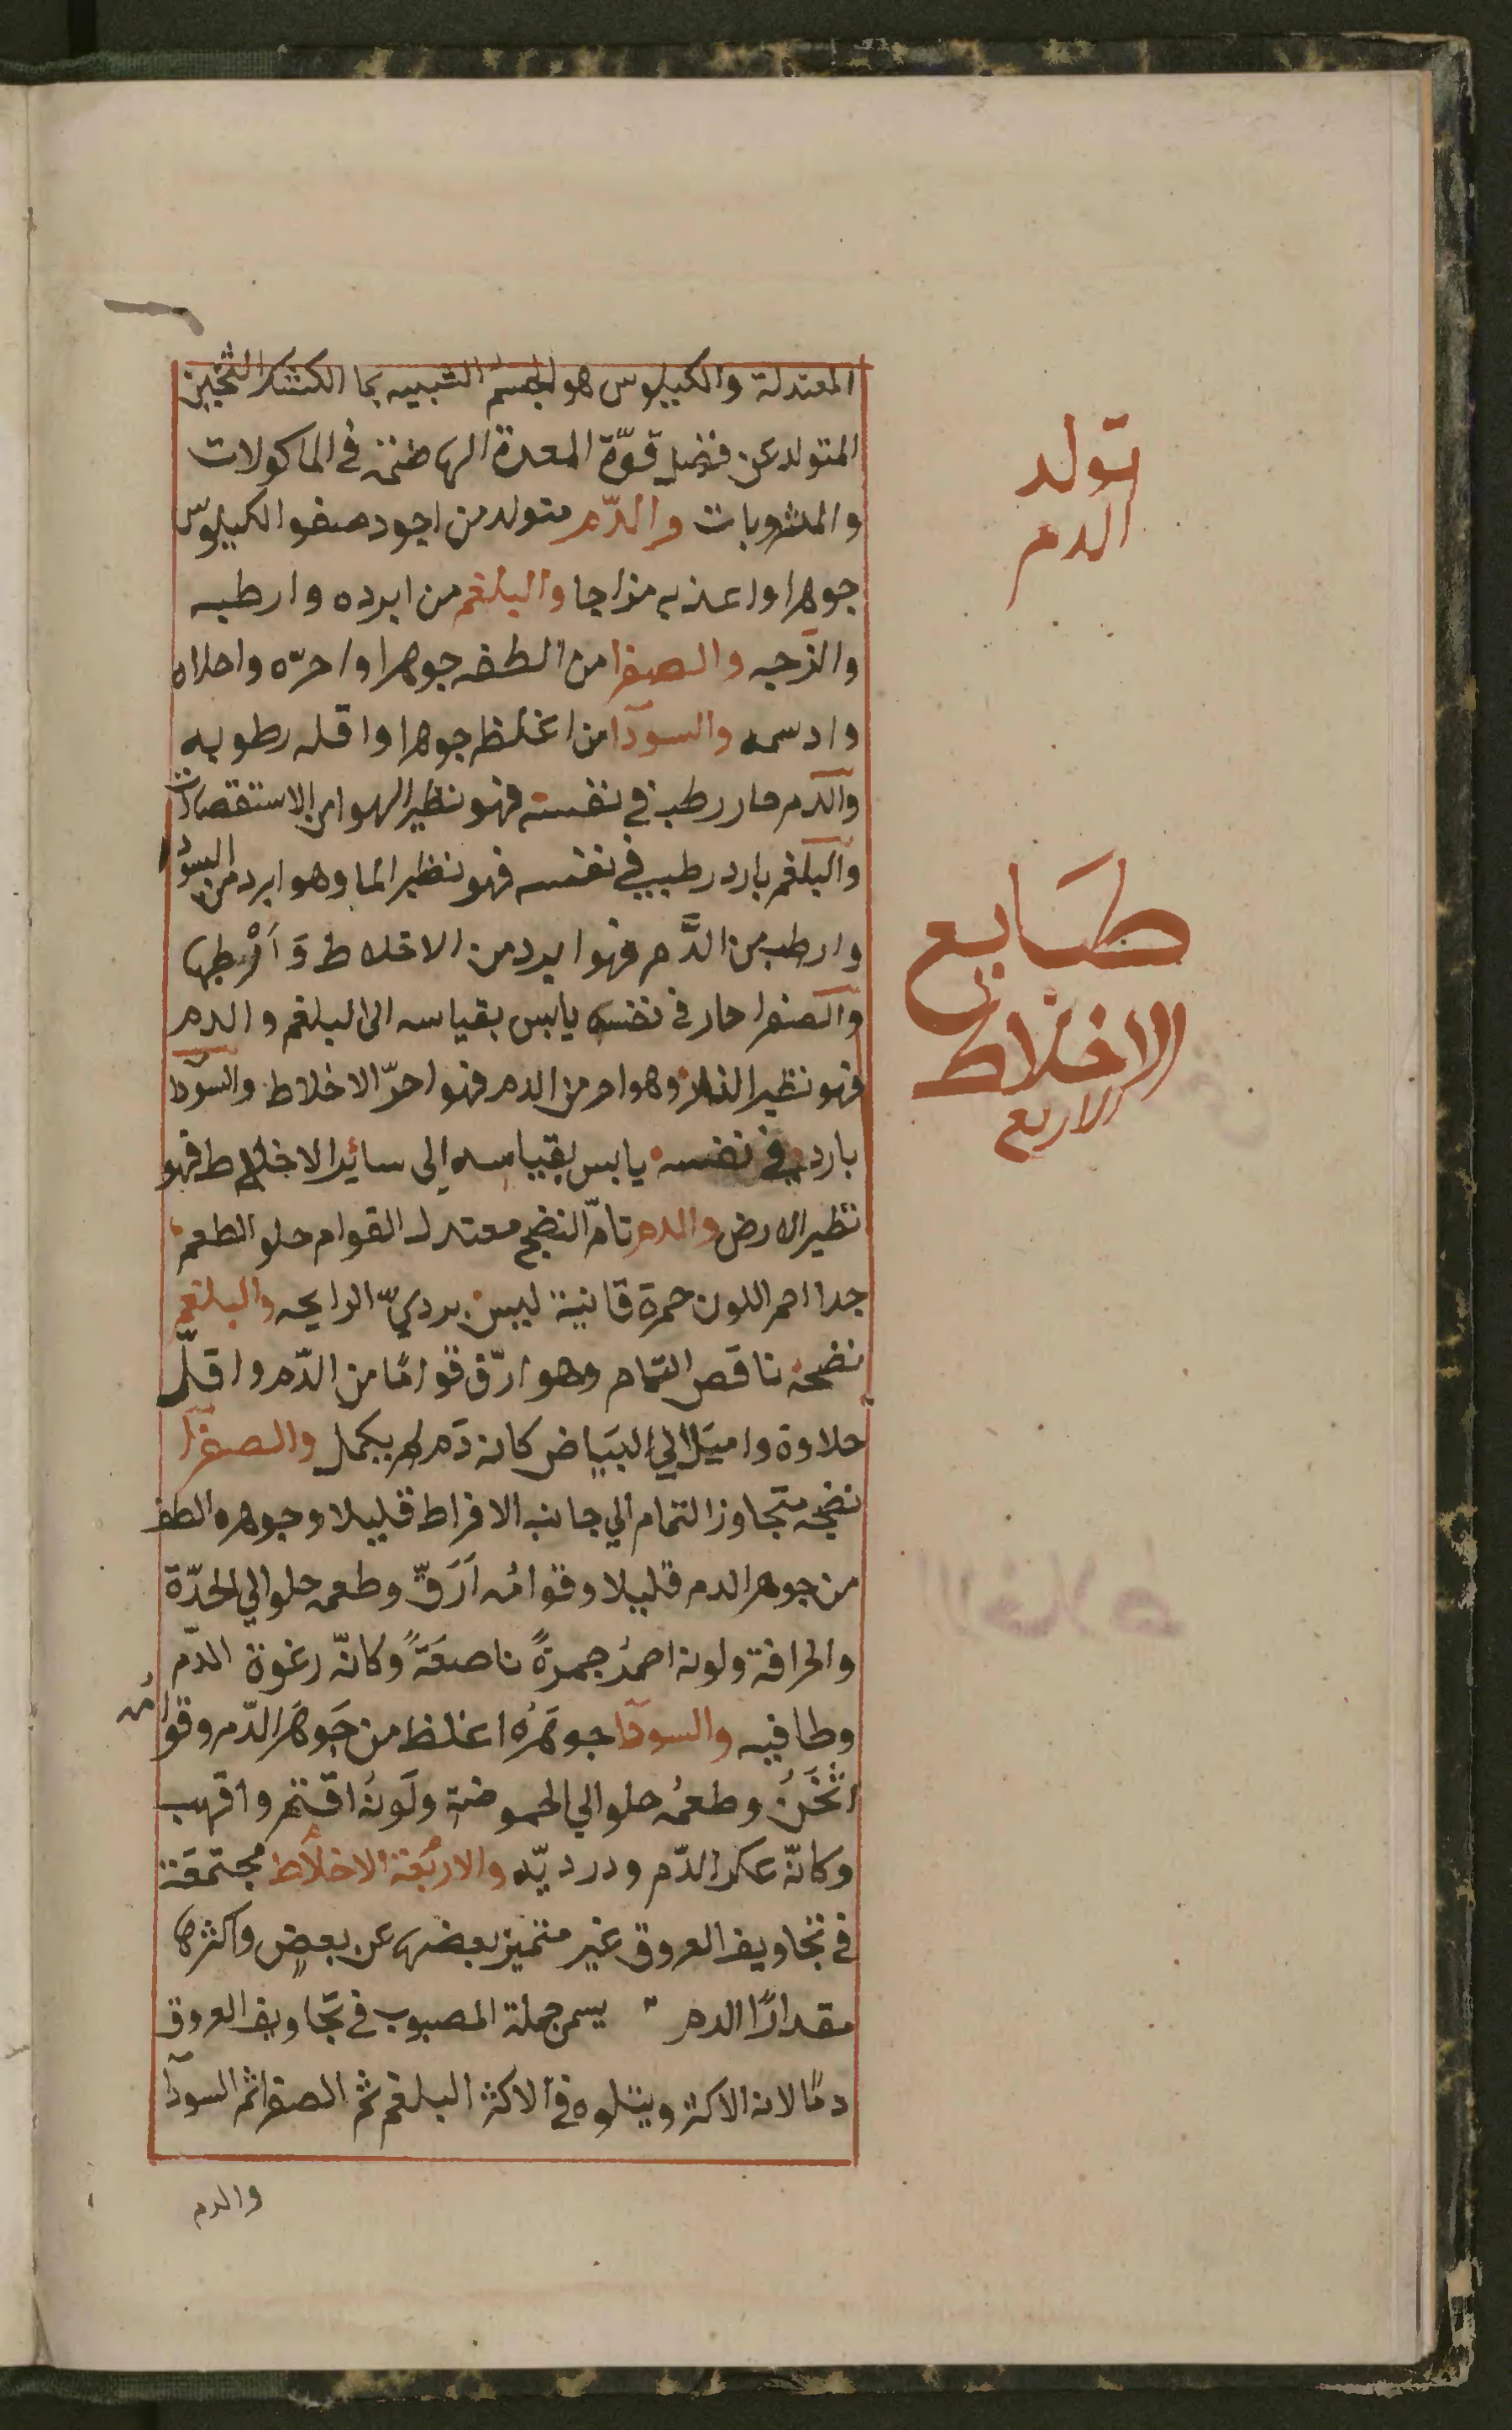 المعتدلة والكيلوس هو الجسم الشبيه بما الكشك الثخين
المتولد عن فضل قوّة المعدة الهاضمة في الماكولات
والمشروبات والدّم متولد من اجود صفو الكيلوس
جوهرا واعذبه مزاجا والبلغم من ابرده وارطبه
والزجه والصفرا من الطفه جوهرا واحرّه واحلاه
وادسمه والسودا من اغلظه جوهرا واقله رطوبه
والدم حار رطب في نفسه فهو نظير الهوا من الاستقصات
والبلغم بارد رطب في نفسه فهو نظير الما وهو ابرد من السودا
وارطب من الدَّم فهو ابرد من الاخلاط وَاَرْطبها
والصفرا حار في نفسه يابس بقياسه الى البلغم والدم
فهو نظير النار وهو احر من الدم فهو احرّ الاخلاط والسودا
بارد في نفسه يابس بقياسه الى سائر الاخلاط فهو
نظير الارض والدم تامّ النضج معتدل القوام حلو الطعم
جدا احمر اللون حمرة قانية ليس برديّ الرايحه والبلغم
نضجه ناقص التمام وهو ارّق قوامًا من الدّم واقلّ
حلاوة واميل الي البَيَاض كانه دَم لم يكمل والصفرا
نضجه متجاوز التمام الي جانب الافراط قليلا وجوهره الطف
من جوهر الدم قليلا وقوامُه اَرَقّ وطعمه حلو الي الحدّة
والحرافة ولونه احمرُ حمرةً ناصعَةً وكانّه رغوة الدّم
وطافيه والسودا جوهَرُه اغلظ من جَوهَر الدّم وقوامُه
اثْخَنُ وطعمُه حلو الي الحموضة ولَونُه اقتم واقهب
وكانّه عكر الدّم ودرديّه والاربعَة الاخلاط مجتمعَة
في تجاويف العروق غير متميز بعضها عن بعضٍ واكثرها
مقدارًا الدم يسمى جملة المصبوب في تجاويف العروق
دمًا لانه الاكثر ويتلوه في الاكثر البلغم ثم الصفرا ثم السودا
والدم
تولد
الدم
طبَايع
الاخلاط
الاربع